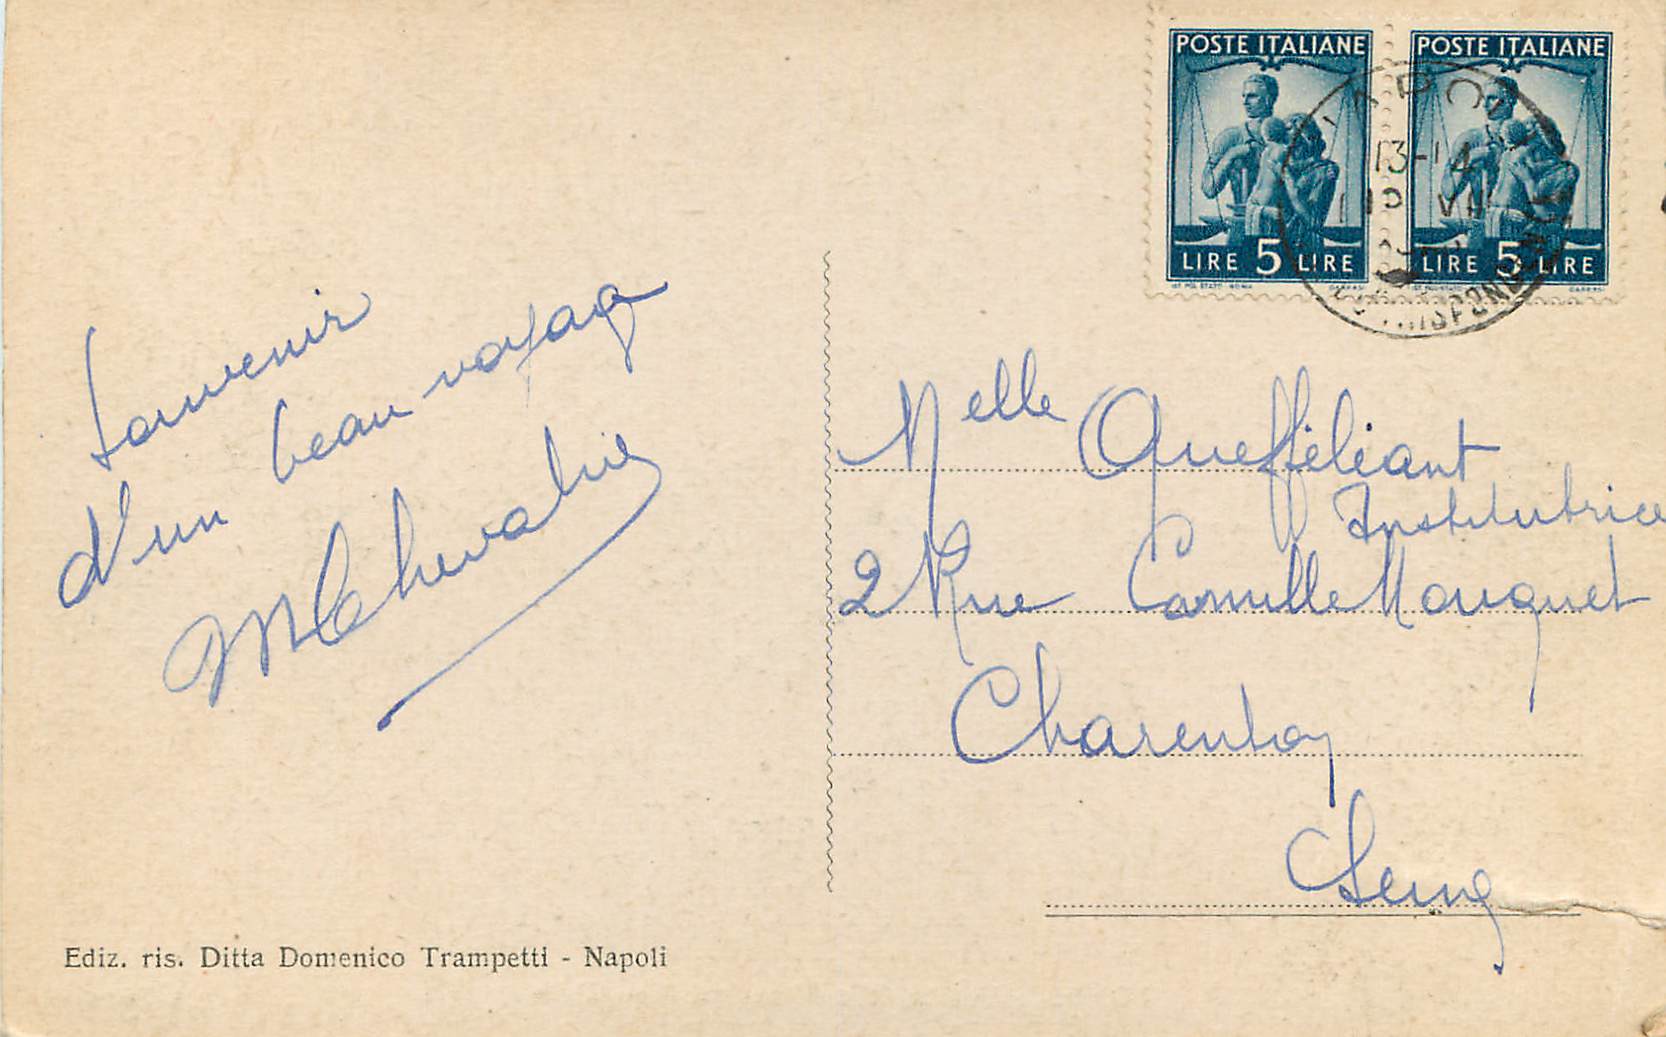 POSTE ITALIANE
LIRE 5 LIRE
POSTE ITALIANE
LIRE 5 LIRE
13-14
Souvenir
d'un beau voyage
M Chevalier
Melle Queffeliant
Institutrice
2 Rue Camille Mouquet
Charenton
Seine
Ediz. ris. Ditta Domenico Trampetti - Napoli